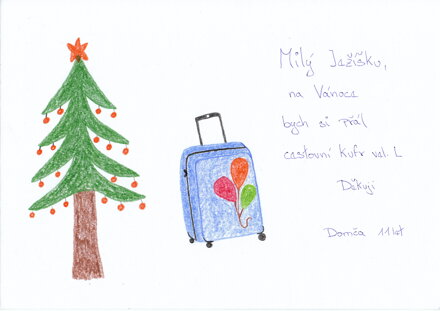 Milý Ježíšku,
na Vánoce
bych si přál
cestovní kufr vel. L
Děkuji
Domča 11 let